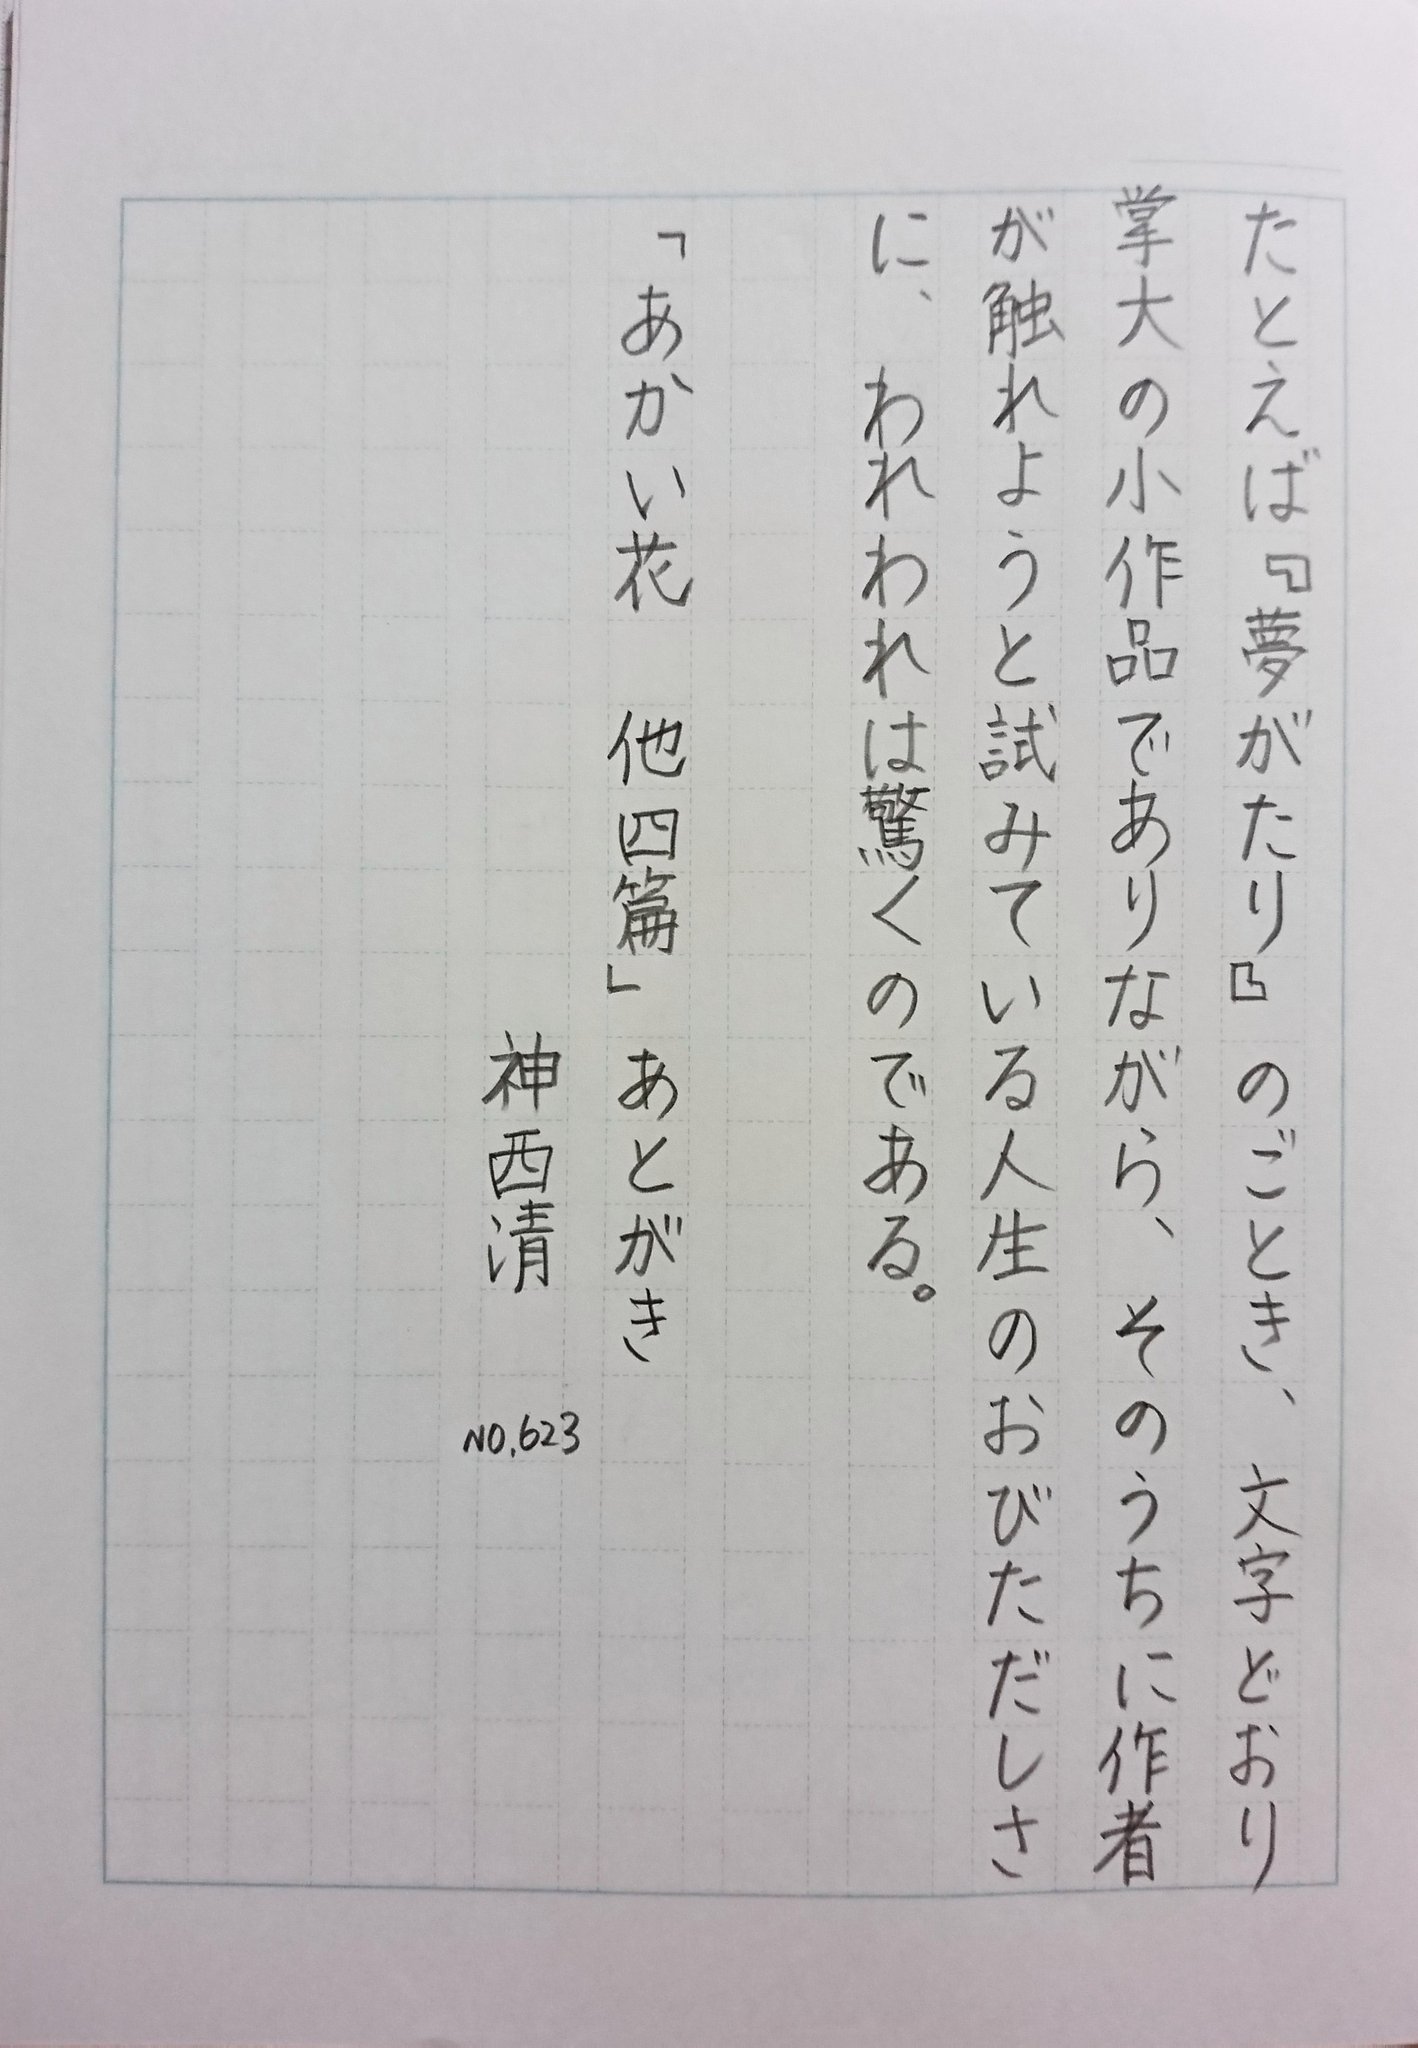 たとえば『夢がたり』のごとき、文字どおり
掌大の小作品でありながら、そのうちに作者
が触れようと試みている人生のおびただしさ
に、われわれは驚くのである。
「あかい花　他四篇」あとがき
神西清
NO.623